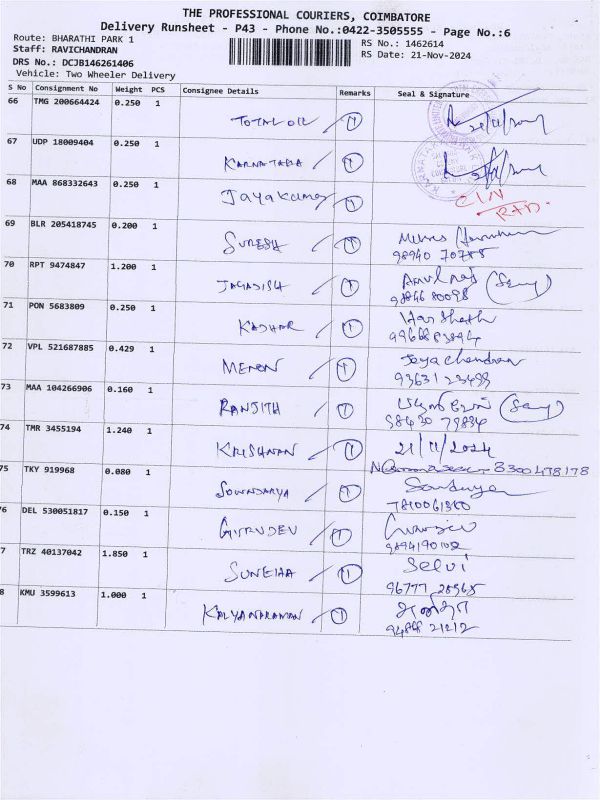 THE PROFESSIONAL COURIERS, COIMBATORE
Delivery Runsheet - P43 - Phone No.:0422-3505555 - Page No.:6
Route: BHARATHI PARK 1 RS No.: 1462614
Staff: RAVICHANDRAN RS Date: 21-Nov-2024
DRS No.: DCJB146261406
Vehicle: Two Wheeler Delivery
S No Consignment No Weight PCS Consignee Details Remarks Seal & Signature
66 TMG 200664424 0.250 1 TOTAL OIL 1 21/11/2024
67 UDP 18009404 0.250 1 KARNATAKA 1
68 MAA 868332643 0.250 1 Jayakumar 1
69 BLR 205418745 0.200 1 SURESH 1
98940 70785
70 RPT 9474847 1.200 1 JAGADISH 1 Amulraj
9884680098
71 PON 5683809 0.250 1 KADHAR 1 Harshath
72 VPL 521687885 0.429 1 MENON 1 Jeya Chandran
9363123499
73 MAA 104266906 0.160 1 RANJITH 1
98430 79834
74 TMR 3455194 1.240 1 KRISHNAN 1 21/11/2024
8300478178
75 TKY 919968 0.080 1 SOWNDARYA 1
7810061380
76 DEL 530051817 0.150 1 GURUDEV 1
9894190102
7 TRZ 40137042 1.850 1 SUNEHA 1 Selvi
96777 28965
8 KMU 3599613 1.000 1 KALYANARAMAN 1
94888 21212